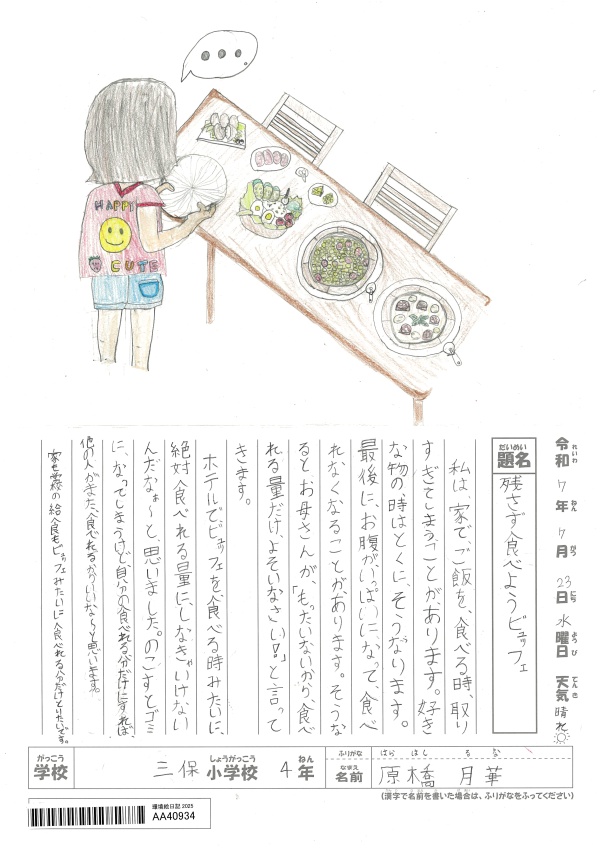 HAPPY
CUTE
令和 7年 7月 23日 水曜日 天気 晴れ
れいわ ねん がつ にち ようび てんき
だいめい
題名
残さず食べようビュッフェ
私は、家で、ご飯を、食べる時、取り
すぎてしまうことがあります。好き
な物の、時はとくに、そうなります。
最後に、お腹がいっぱいになって、食べ
れなくなることがあります。そうな
るとお母さんが、「もったいないから、食べ
れる量だけ、よそいなさい!!」と言って
きます。
ホテルでビュッフェを食べる時みたいに、
絶対食べれる量にしなきゃいけない
んだなぁ〜と、思いました。のこすとゴミ
に、なってしまうけど自分の食べれる分だけにすれば、
他の人がまた、食べれるからいいな〜と思います。
家も学校の給食もビュッフェみたいに食べれる分だけとりたいです。
がっこう
学校
三保 小学校 4年
しょうがっこう ねん
ふりがな
はら はし る な
なまえ
名前
原橋 月華
(漢字で名前を書いた場合は、ふりがなをふってください)
環境絵日記 2025
AA40934